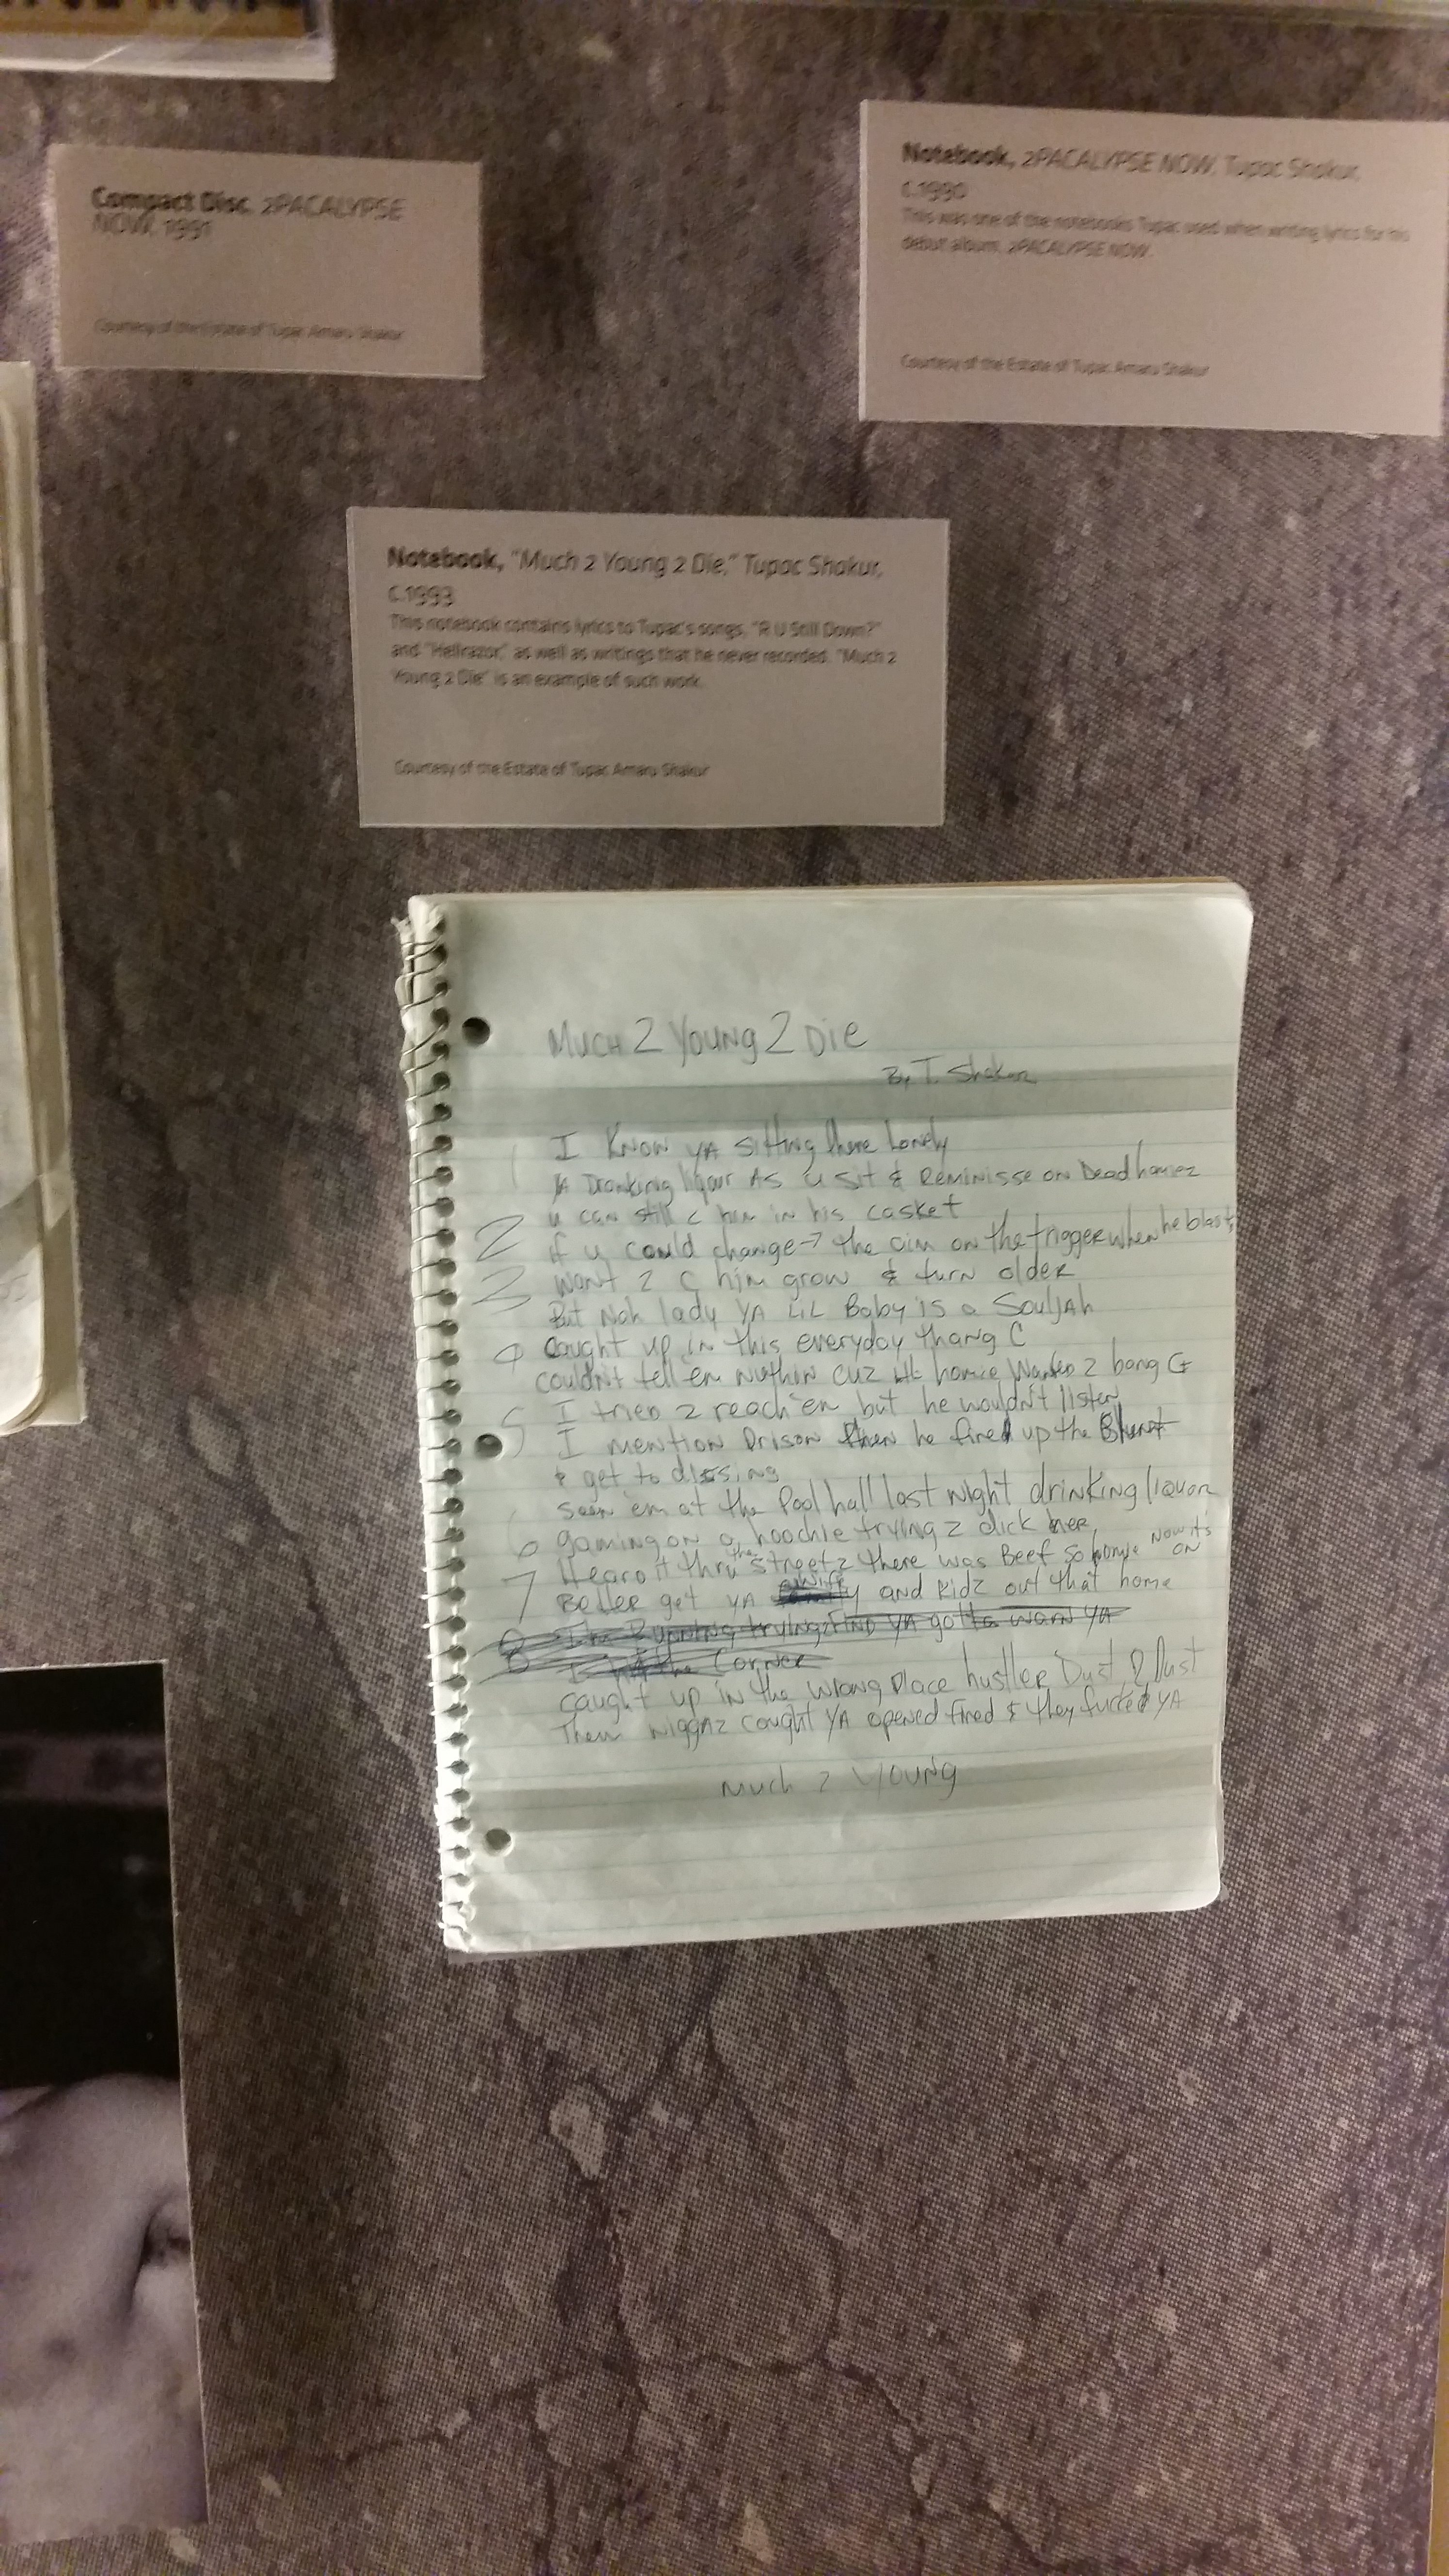 Compact Disc, 2PACALYPSE
NOW, 1991
Courtesy of the Estate of Tupac Amaru Shakur
Notebook, 2PACALYPSE NOW, Tupac Shakur,
c.1990
This was one of the notebooks Tupac used when writing lyrics for his
debut album, 2PACALYPSE NOW.
Courtesy of the Estate of Tupac Amaru Shakur
Notebook, "Much 2 Young 2 Die," Tupac Shakur,
c.1993
This notebook contains lyrics to Tupac's songs, "R U Still Down?"
and "Hellrazor," as well as writings that he never recorded. "Much 2
Young 2 Die" is an example of such work.
Courtesy of the Estate of Tupac Amaru Shakur
Much 2 Young 2 Die
By T. Shakur
1 I Know YA sitting there Lonely
Drinking liquor As u sit & Reminisse on Dead homiez
u can still c him in his casket
2 if u could change → the aim on the trigger when he blasts
3 want 2 c him grow & turn older
But Nah lady YA LiL Baby is a SoulJAh
4 caught up in this everyday thang C
couldn't tell em nuthin cuz lil homie Wanted 2 bang G
5 I tried 2 reach 'em but he wouldn't listen
I mention prison then he fired up the Blunt
& get to dissing
seen 'em at the Pool hall last night drinking liquor
6 gaming on a hoochie trying 2 dick her
7 Heard it thru the streetz there was Beef so homie Now it's ON
Better get YA wife and kidz out that home
8 I'm Running trying 2 FIND YA gotta warn YA
I hit the Corner
caught up in the wrong Place hustler Dust 2 Dust
Them niggaz caught YA opened fired & they fucked YA
Much 2 Young